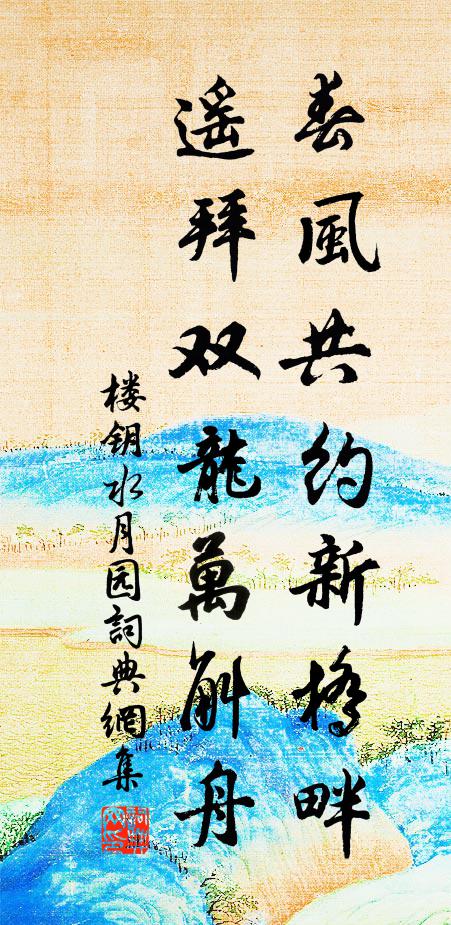 春風共約新橋畔
遥拜双龍萬斛舟
楼钥水月园詞典網集